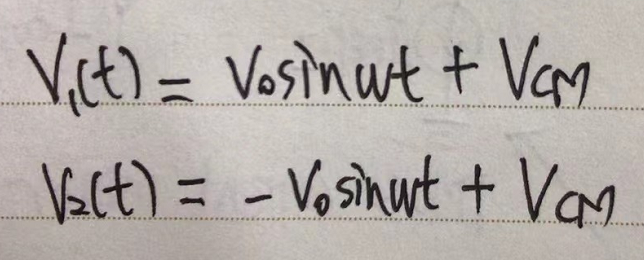 V₁(t) = V₀sinωt + V_CM
V₂(t) = - V₀sinωt + V_CM